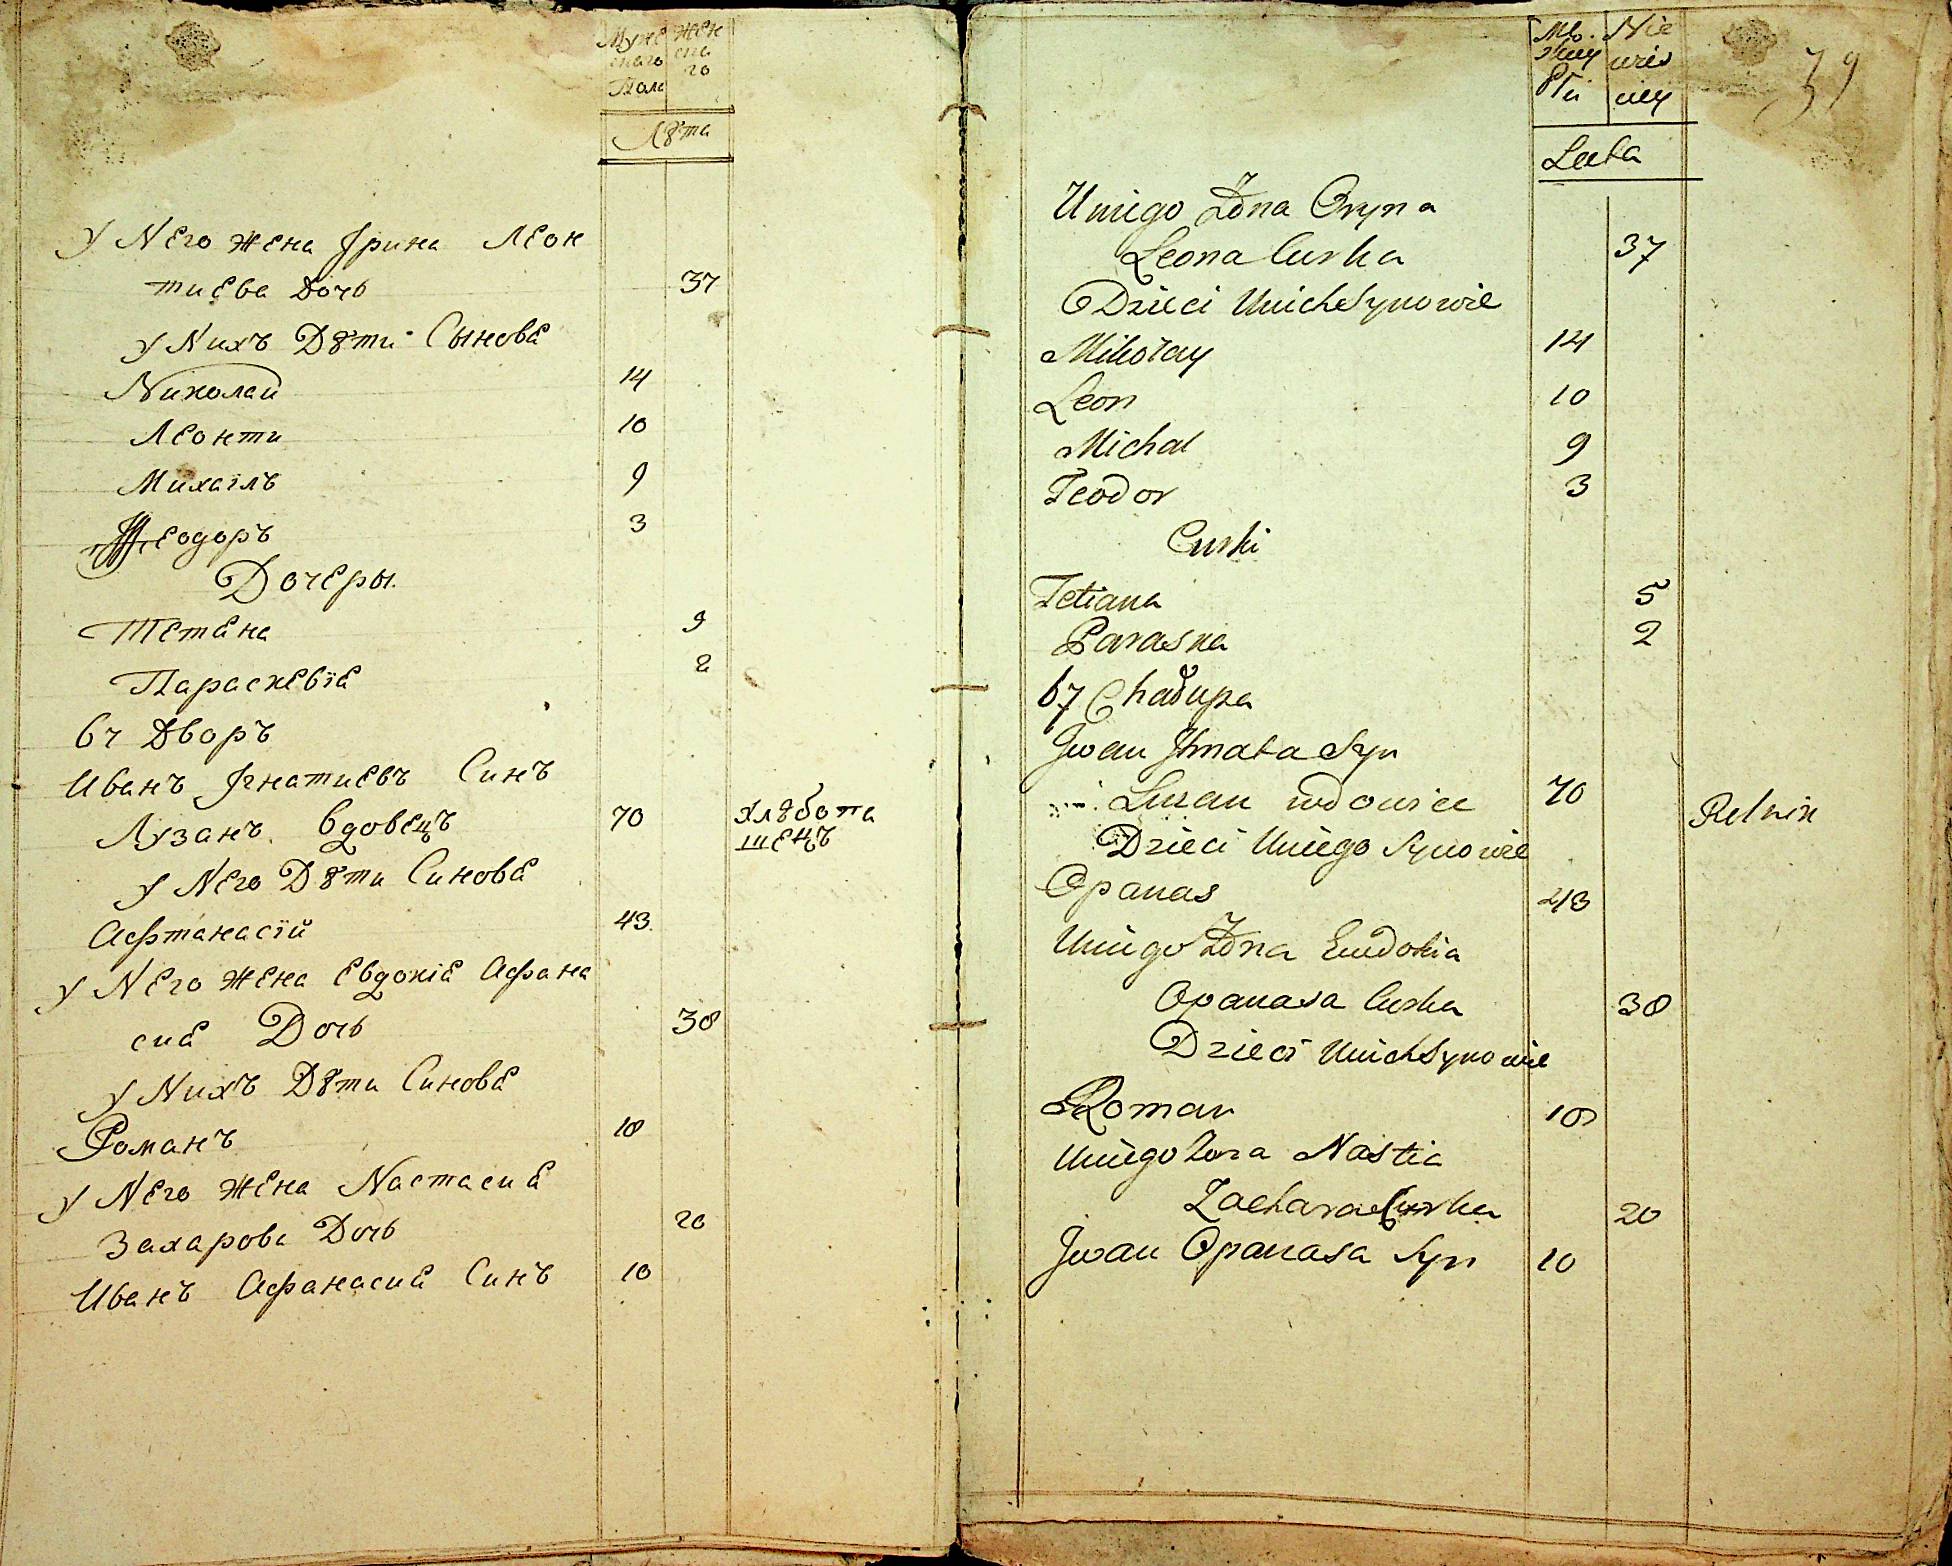 Муже жен
скаго ска
Пола го
Лѣта
у Него жена Ірина Леон
тиева Дочь 37
у Нихъ Дѣти Сыновѐ
Николай 14
Леонти 10
Михаілъ 9
Ѳеодоръ 3
Дочеры.
Тетѐна 5
Параскевіѐ 2
67 Дворъ
Иванъ Ігнатиевъ Синъ
Лузанъ. вдовецъ 70 хлѣбопа
шецъ
у Него Дѣти Синовѐ
Афтанасій 43.
у Него жена Евдокіѐ Афана
сиѐ Дочь 38
у Нихъ Дѣти Синовѐ
Романъ 18
у Него жѐна Настасиѐ
Захарова Дочь 20
Иванъ Афанасиѐ Синъ 10
39
Lata
Uniego Żona Oryna
Leona Curka 37
Dzieci Unich Synowie
Mikołay 14
Leon 10
Michal 9
Teodor 3
Curki
Tetiana 5
Paraska 2
67 Chałupa
Jwan Jhnata Syn
Luzan wdowiec 70 Rolnik
Dzieci Uniego Synowie
Opanas 43
Uniego Żona Ewdokia
Opanasa Curka 38
Dzieci Unich Synowie
Roman 18
Uniego Zona Nastia
Zachara Curka 20
Jwan Opanasa Syn 10